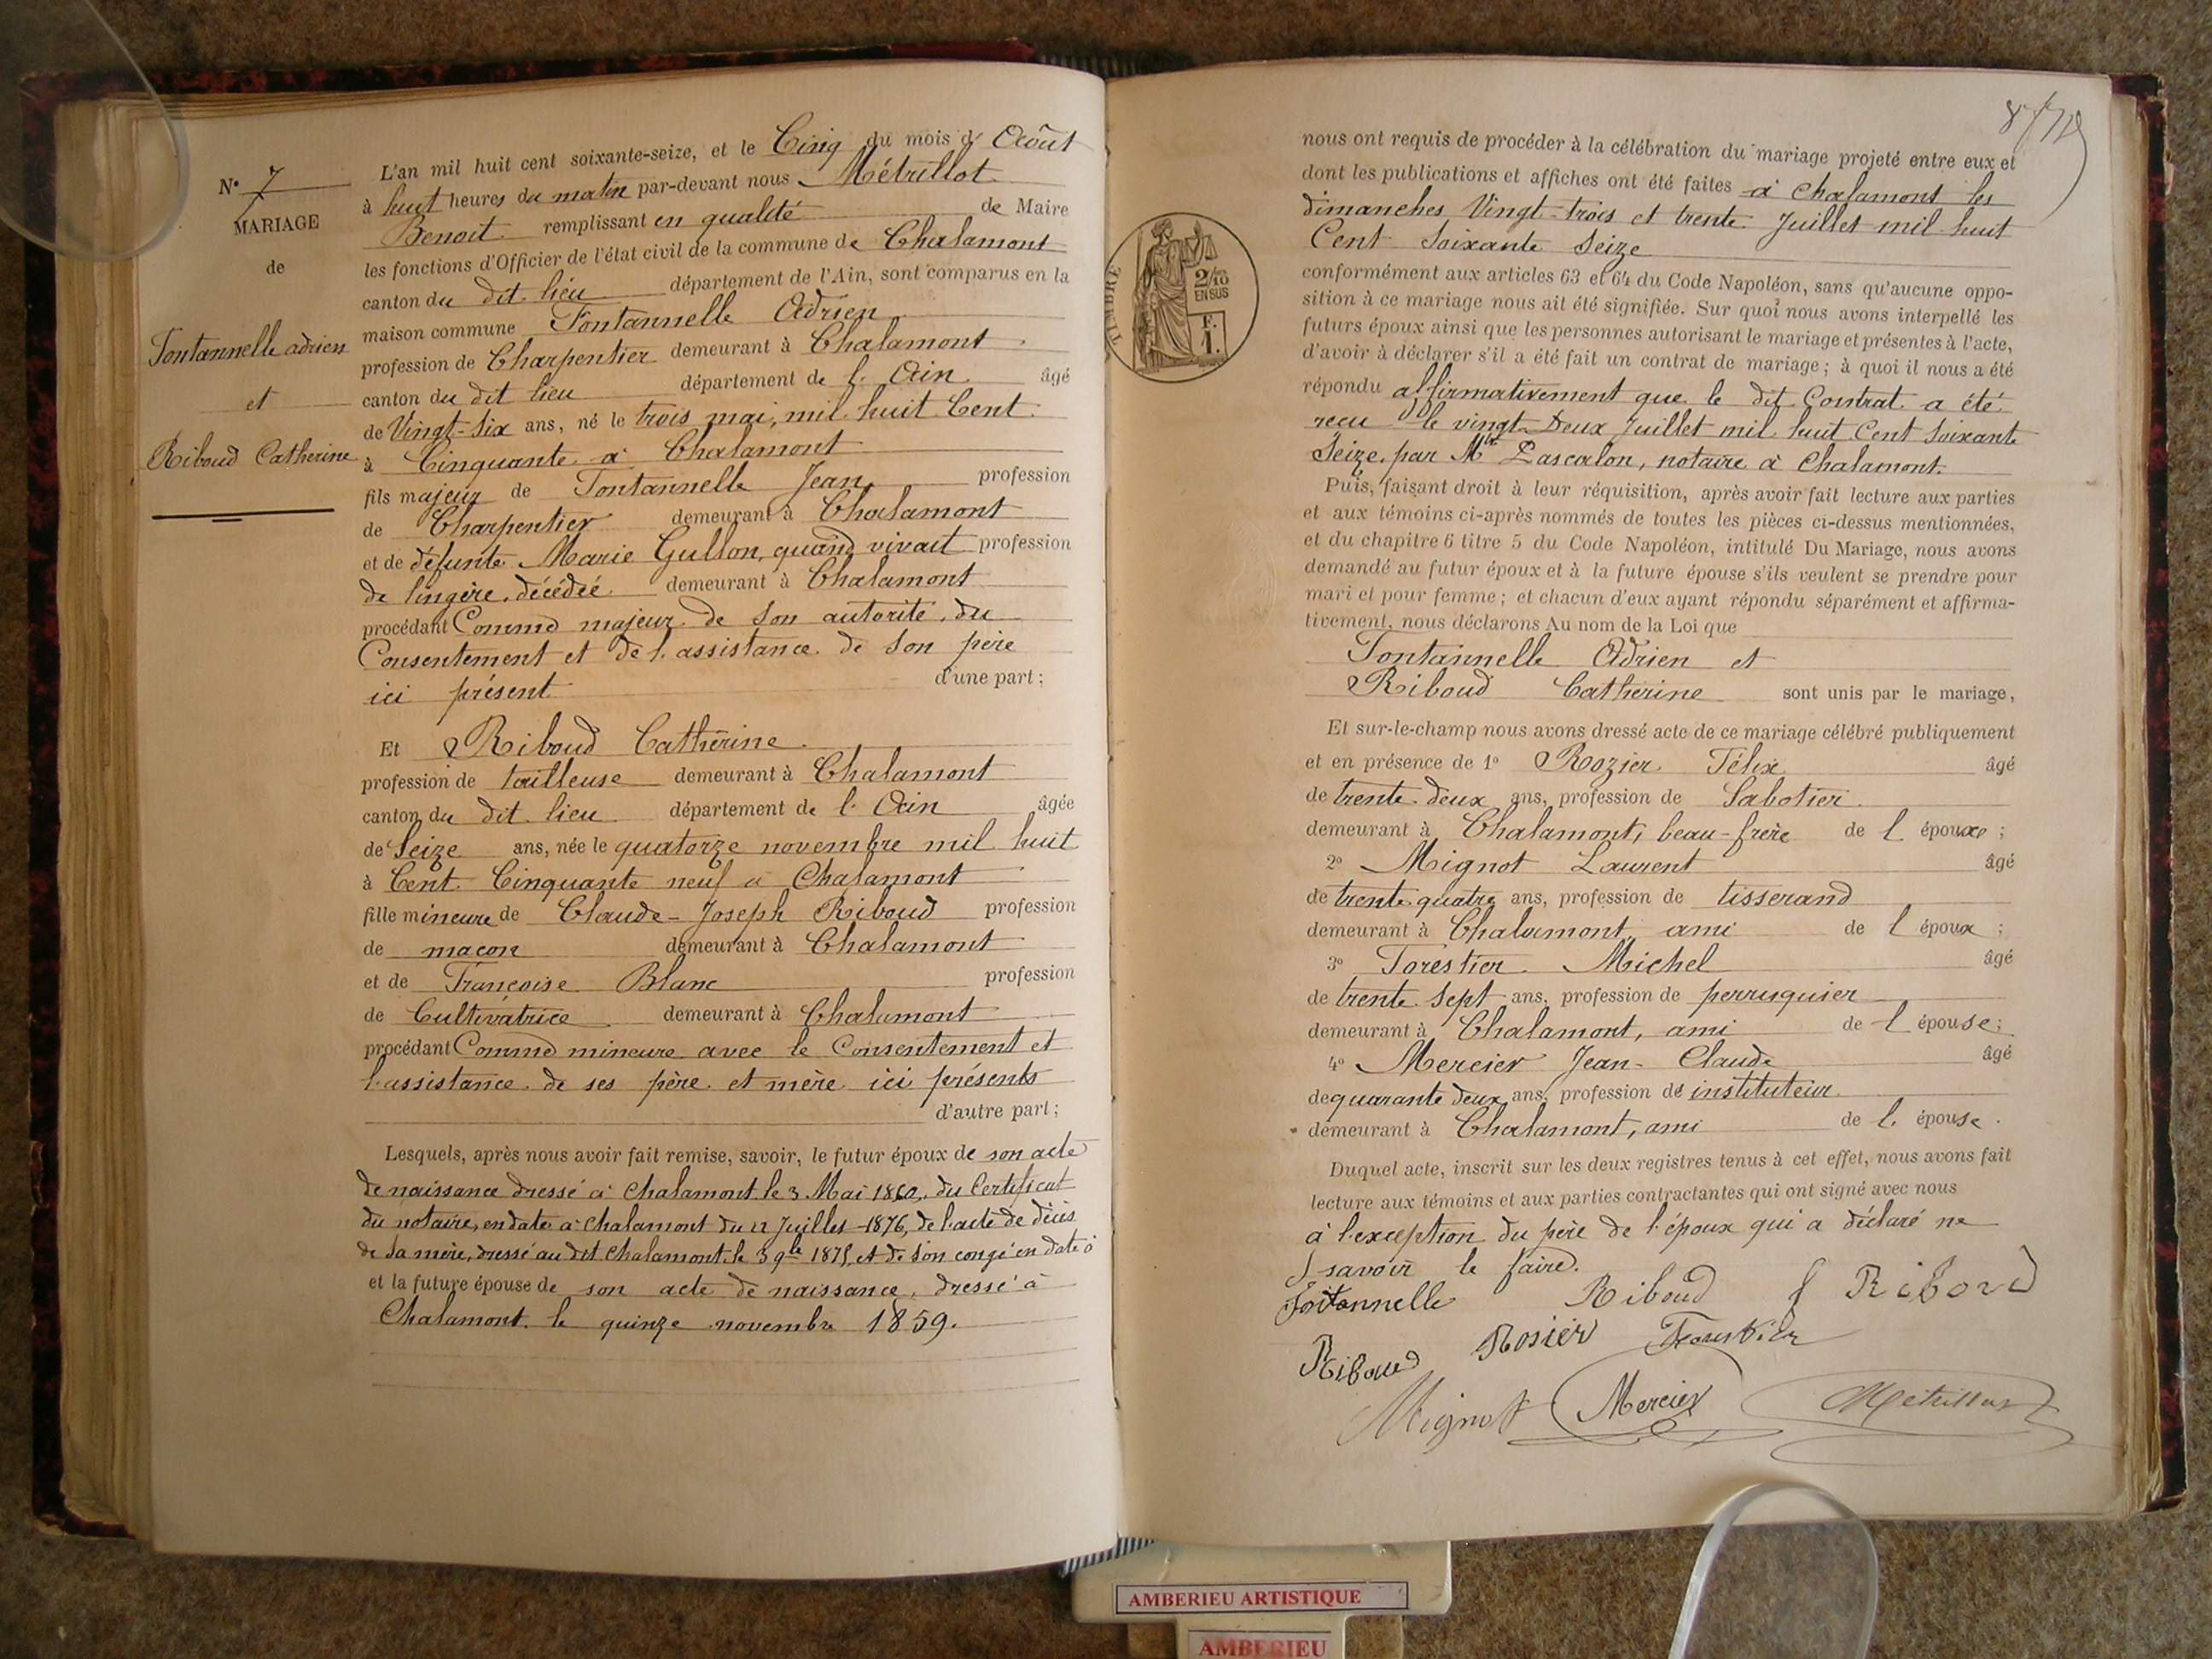 N° 7
MARIAGE
de
Fontannelle adrien
et
Riboud Catherine
L'an mil huit cent soixante-seize, et le Cinq du mois d' Août
à huit heures du matin par-devant nous Métrillot
Benoit remplissant en qualité de Maire
les fonctions d'Officier de l'état civil de la commune de Chalamont
canton du dit lieu département de l'Ain, sont comparus en la
maison commune Fontannelle Adrien
profession de Charpentier demeurant à Chalamont
canton du dit lieu département de l'Ain âgé
de Vingt-Six ans, né le trois mai, mil huit Cent
à Cinquante à Chalamont
fils majeur de Fontannelle Jean profession
de Charpentier demeurant à Chalamont
et de défunte Marie Gullon, quand vivait profession
de lingère, décédée demeurant à Chalamont
procédant Comme majeur de Son autorité, du
Consentement et de l'assistance de Son père
ici présent d'une part;
Et Riboud Catherine
profession de tailleuse demeurant à Chalamont
canton du dit lieu département de l'Ain âgée
de Seize ans, née le quatorze novembre mil huit
à Cent Cinquante neuf à Chalamont
fille mineure de Claude-Joseph Riboud profession
de maçon demeurant à Chalamont
et de Françoise Blanc profession
de Cultivatrice demeurant à Chalamont
procédant Comme mineure avec le Consentement et
l'assistance de ses père et mère ici présents
d'autre part;
Lesquels, après nous avoir fait remise, savoir, le futur époux de son acte
de naissance dressé à Chalamont le 3 Mai du Certificat
du notaire, en date à Chalamont du 22 Juillet 1876, de l'acte de décès
de sa mère, dressé au dit Chalamont le 3 9bre 1875, et de son congé en date à
et la future épouse de son acte de naissance, dressé à
Chalamont le quinze novembre 1859.
nous ont requis de procéder à la célébration du mariage projeté entre eux et
dont les publications et affiches ont été faites à Chalamont les
dimanches Vingt-trois et trente Juillet mil huit
Cent Soixante Seize
conformément aux articles 63 et 64 du Code Napoléon, sans qu'aucune oppo-
sition à ce mariage nous ait été signifiée. Sur quoi nous avons interpellé les
futurs époux ainsi que les personnes autorisant le mariage et présentes à l'acte,
d'avoir à déclarer s'il a été fait un contrat de mariage; à quoi il nous a été
répondu affirmativement que le dit Contrat a été
reçu le vingt-Deux Juillet mil huit Cent Soixante
Seize, par Me Pascalon, notaire à Chalamont.
Puis, faisant droit à leur réquisition, après avoir fait lecture aux parties
et aux témoins ci-après nommés de toutes les pièces ci-dessus mentionnées,
et du chapitre 6 titre 5 du Code Napoléon, intitulé Du Mariage, nous avons
demandé au futur époux et à la future épouse s'ils veulent se prendre pour
mari et pour femme; et chacun d'eux ayant répondu séparément et affirma-
tivement, nous déclarons Au nom de la Loi que
Fontannelle Adrien et
Riboud Catherine sont unis par le mariage,
Et sur-le-champ nous avons dressé acte de ce mariage célébré publiquement
et en présence de 1° Rozier Félix âgé
de trente deux ans, profession de Sabotier
demeurant à Chalamont, beau-frère de l'époux;
2° Mignot Laurent âgé
de trente quatre ans, profession de tisserand
demeurant à Chalamont, ami de l'époux;
3° Forestier Michel âgé
de trente Sept ans, profession de perruquier
demeurant à Chalamont, ami de l'épouse;
4° Mercier Jean-Claude âgé
de quarante deux ans, profession de instituteur
demeurant à Chalamont, ami de l'épouse.
Duquel acte, inscrit sur les deux registres tenus à cet effet, nous avons fait
lecture aux témoins et aux parties contractantes qui ont signé avec nous
à l'exception du père de l'époux qui a déclaré ne
savoir le faire.
Fontannelle Riboud f Riboud
Riboud Rosier Forestier
Mignot Mercier Métrillot
TIMBRE
2/10
EN SUS
F.
1.
AMBERIEU ARTISTIQUE
AMBERIEU